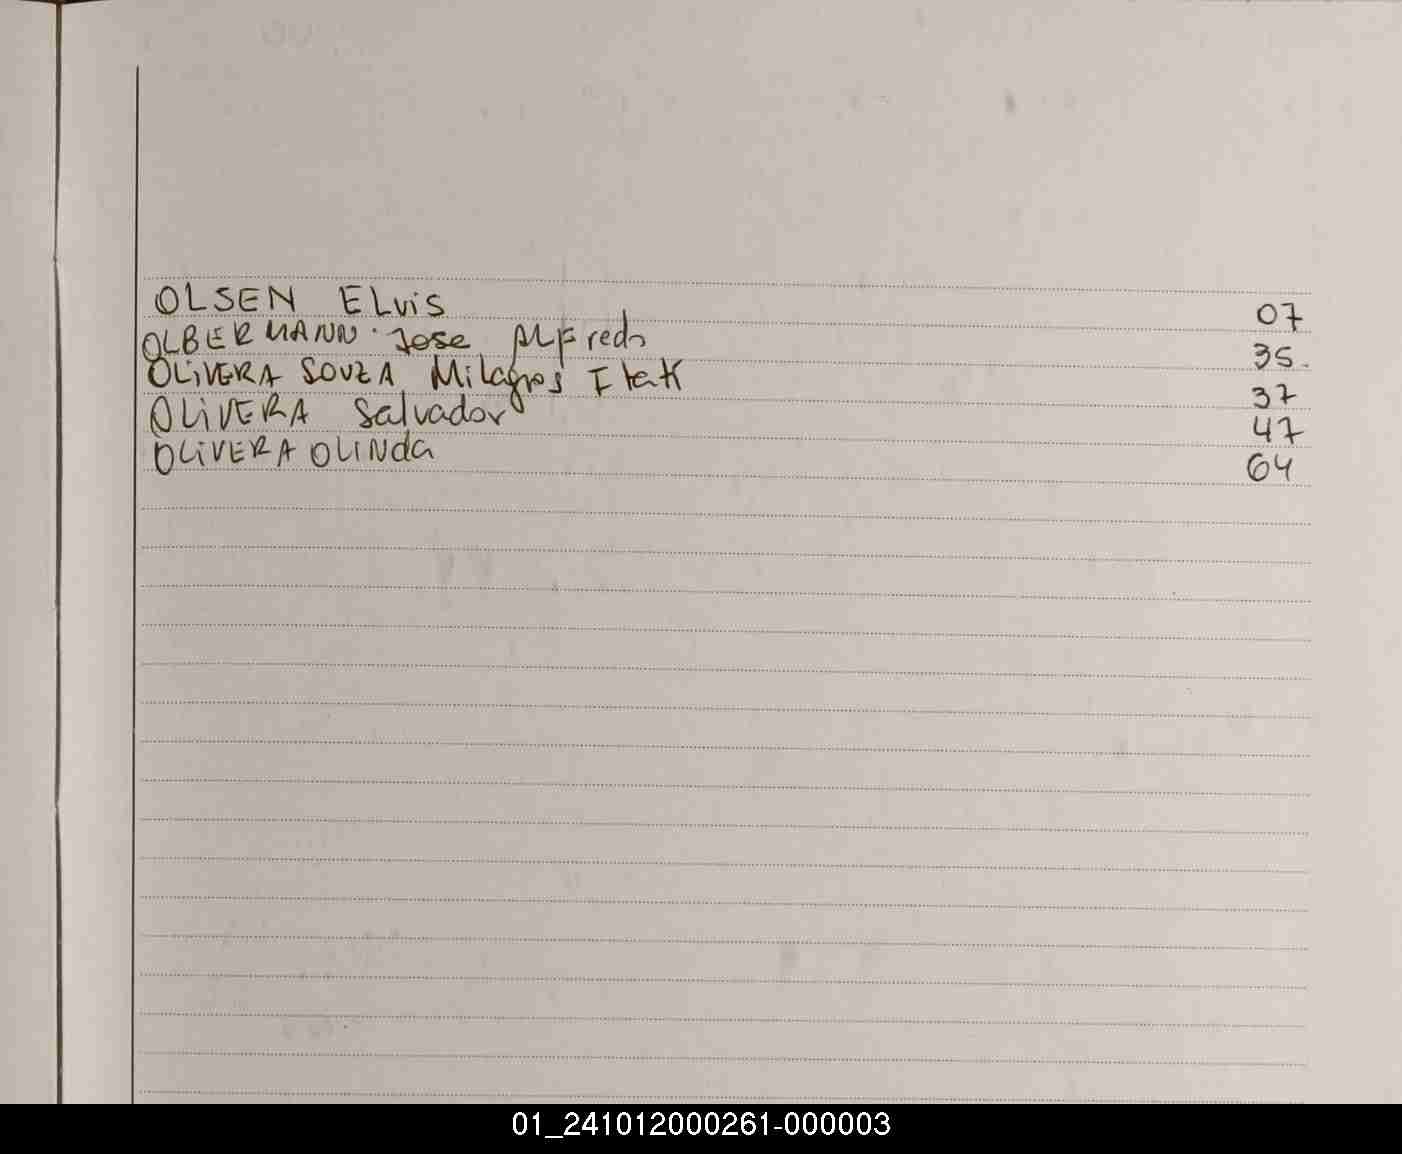 OLSEN ELvis 07
OLBERMANN. Jose Alfredo 35.
OLiVERA SOUZA Milagros 37
OLiVERA Salvador 47
OLiVERA OLINda 64
01_241012000261-000003